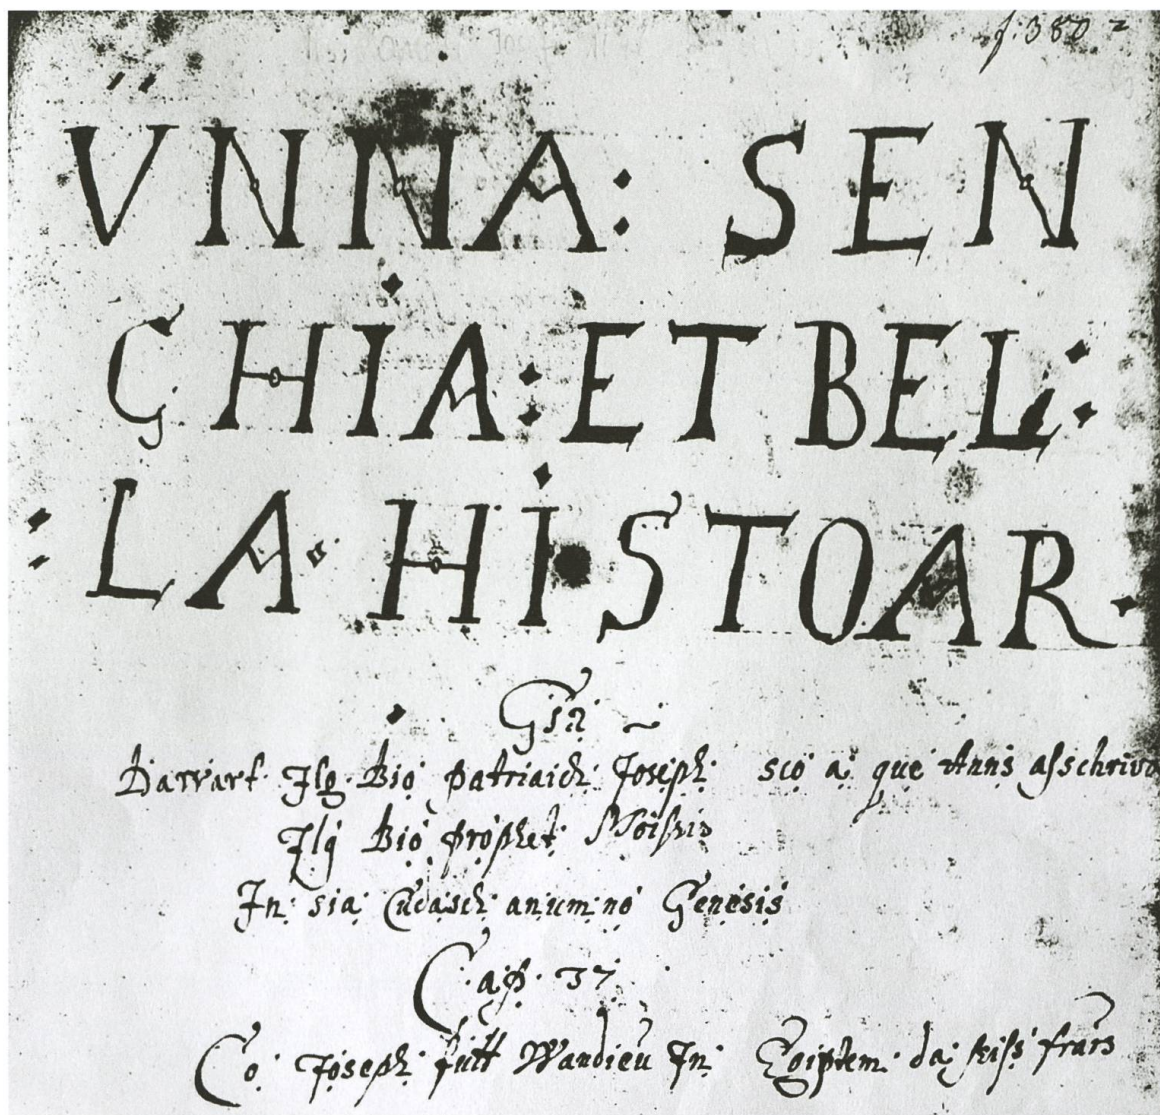 f: 380 2
V̈NNA: SEN
CHIA: ET BEL:
:LA· HISTOAR·
Davvart Ilg Bio patriarch Joseph sco a que Anns asschrivo
Ilg Bio prophet Moises
In sia Cudasch anumno Genesis
Cap. 37
Co Joseph fütt Wandieu In Egiptem da seiss frars